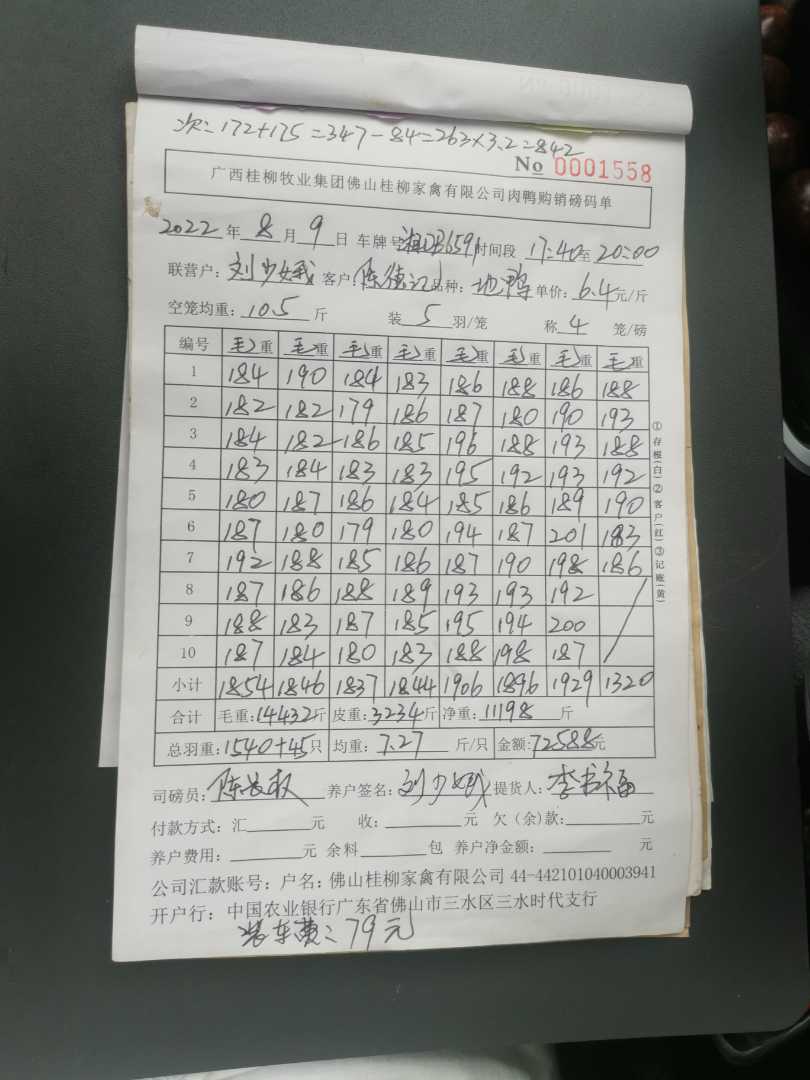 次: 172+175=347-84=263×3.2=842
No 0001558
广西桂柳牧业集团佛山桂柳家禽有限公司肉鸭购销磅码单
2022年8月9日 车牌号 湘DB6591 时间段 17:40至20:00
联营户: 刘少娥 客户 陈德记 品种: 地鸭 单价: 6.4元/斤
空笼均重: 10.5斤 装5羽/笼 称4笼/磅
编号 毛重 毛重 毛重 毛重 毛重 毛重 毛重 毛重
1 184 190 184 183 186 188 186 188
2 182 182 179 186 187 180 190 193
3 184 182 186 185 196 188 193 188
4 183 184 183 183 195 192 193 192
5 180 187 186 184 185 186 189 190
6 187 180 179 180 194 187 201 183
7 192 188 185 186 187 190 198 186
8 187 186 188 189 193 193 192
9 188 183 187 185 195 194 200
10 187 184 180 183 188 198 187
小计 1854 1846 1837 1844 1906 1896 1929 1320
合计 毛重: 14432斤 皮重: 3234斤 净重: 11198斤
总羽重: 1540+45只 均重: 7.27斤/只 金额: 72588元
司磅员: 陈长权 养户签名: 刘少娥 提货人: 李书福
付款方式: 汇 元 收: 元 欠(余)款: 元
养户费用: 元 余料 包 养户净金额: 元
公司汇款账号: 户名: 佛山桂柳家禽有限公司 44-442101040003941
开户行: 中国农业银行广东省佛山市三水区三水时代支行
装车费: 79元
①存根(白)②客户(红)③记账(黄)